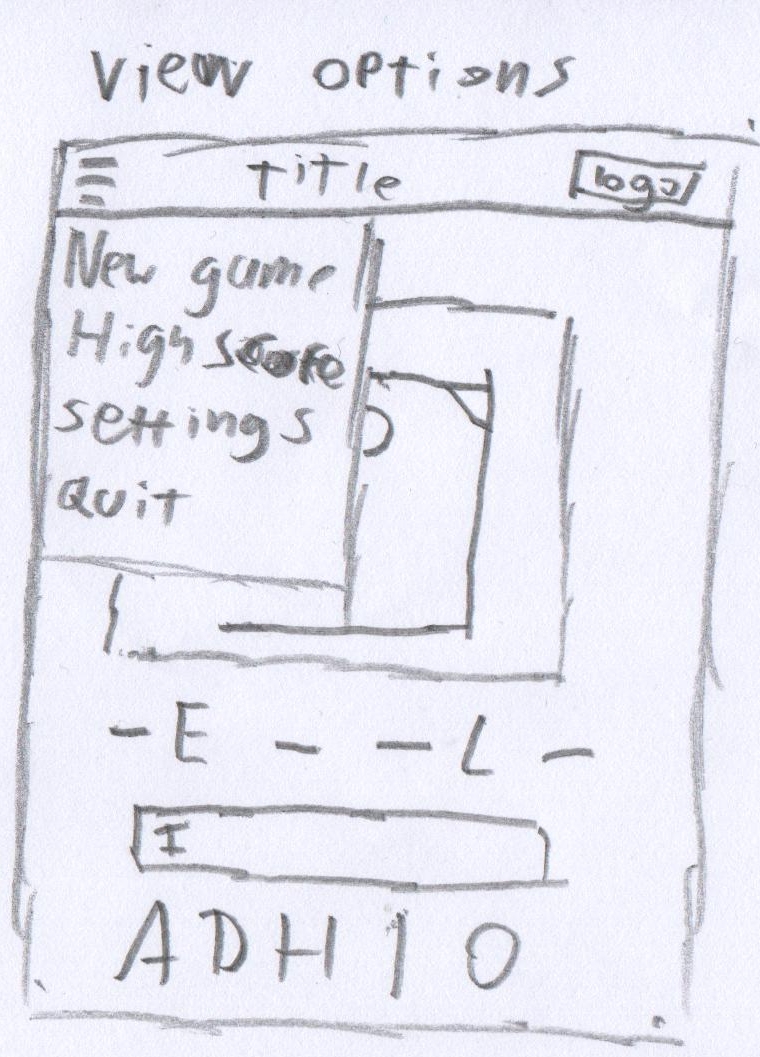 view options
title logo
New game
High score
settings
Quit
- E - - L -
I
A D H I O